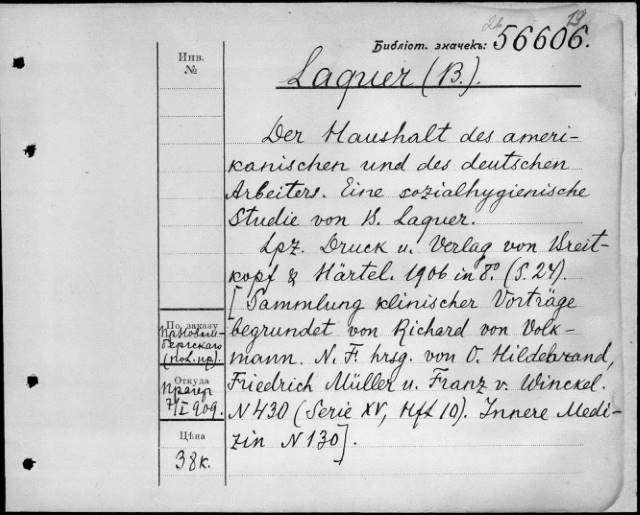 26 19
Библіот. значекъ: 56606.
Инв.
№
Laquer (B.).
Der Haushalt des ameri-
kanischen und des deutschen
Arbeiters. Eine sozialhygienische
Studie von B. Laquer.
Lpz. Druck u. Verlag von Breit-
kopf & Härtel. 1906 in 8º. (S. 24).
[Sammlung klinischer Vorträge
begrundet von Richard von Volk-
mann. N. F. hrsg. von O. Hildebrand,
Friedrich Müller u. Franz v. Winckel.
N 430 (Serie XV, Hft 10). Innere Medi-
zin N 130].
По заказу
(нов. пр.).
Откуда
7/I 909.
Цѣна
38 к.